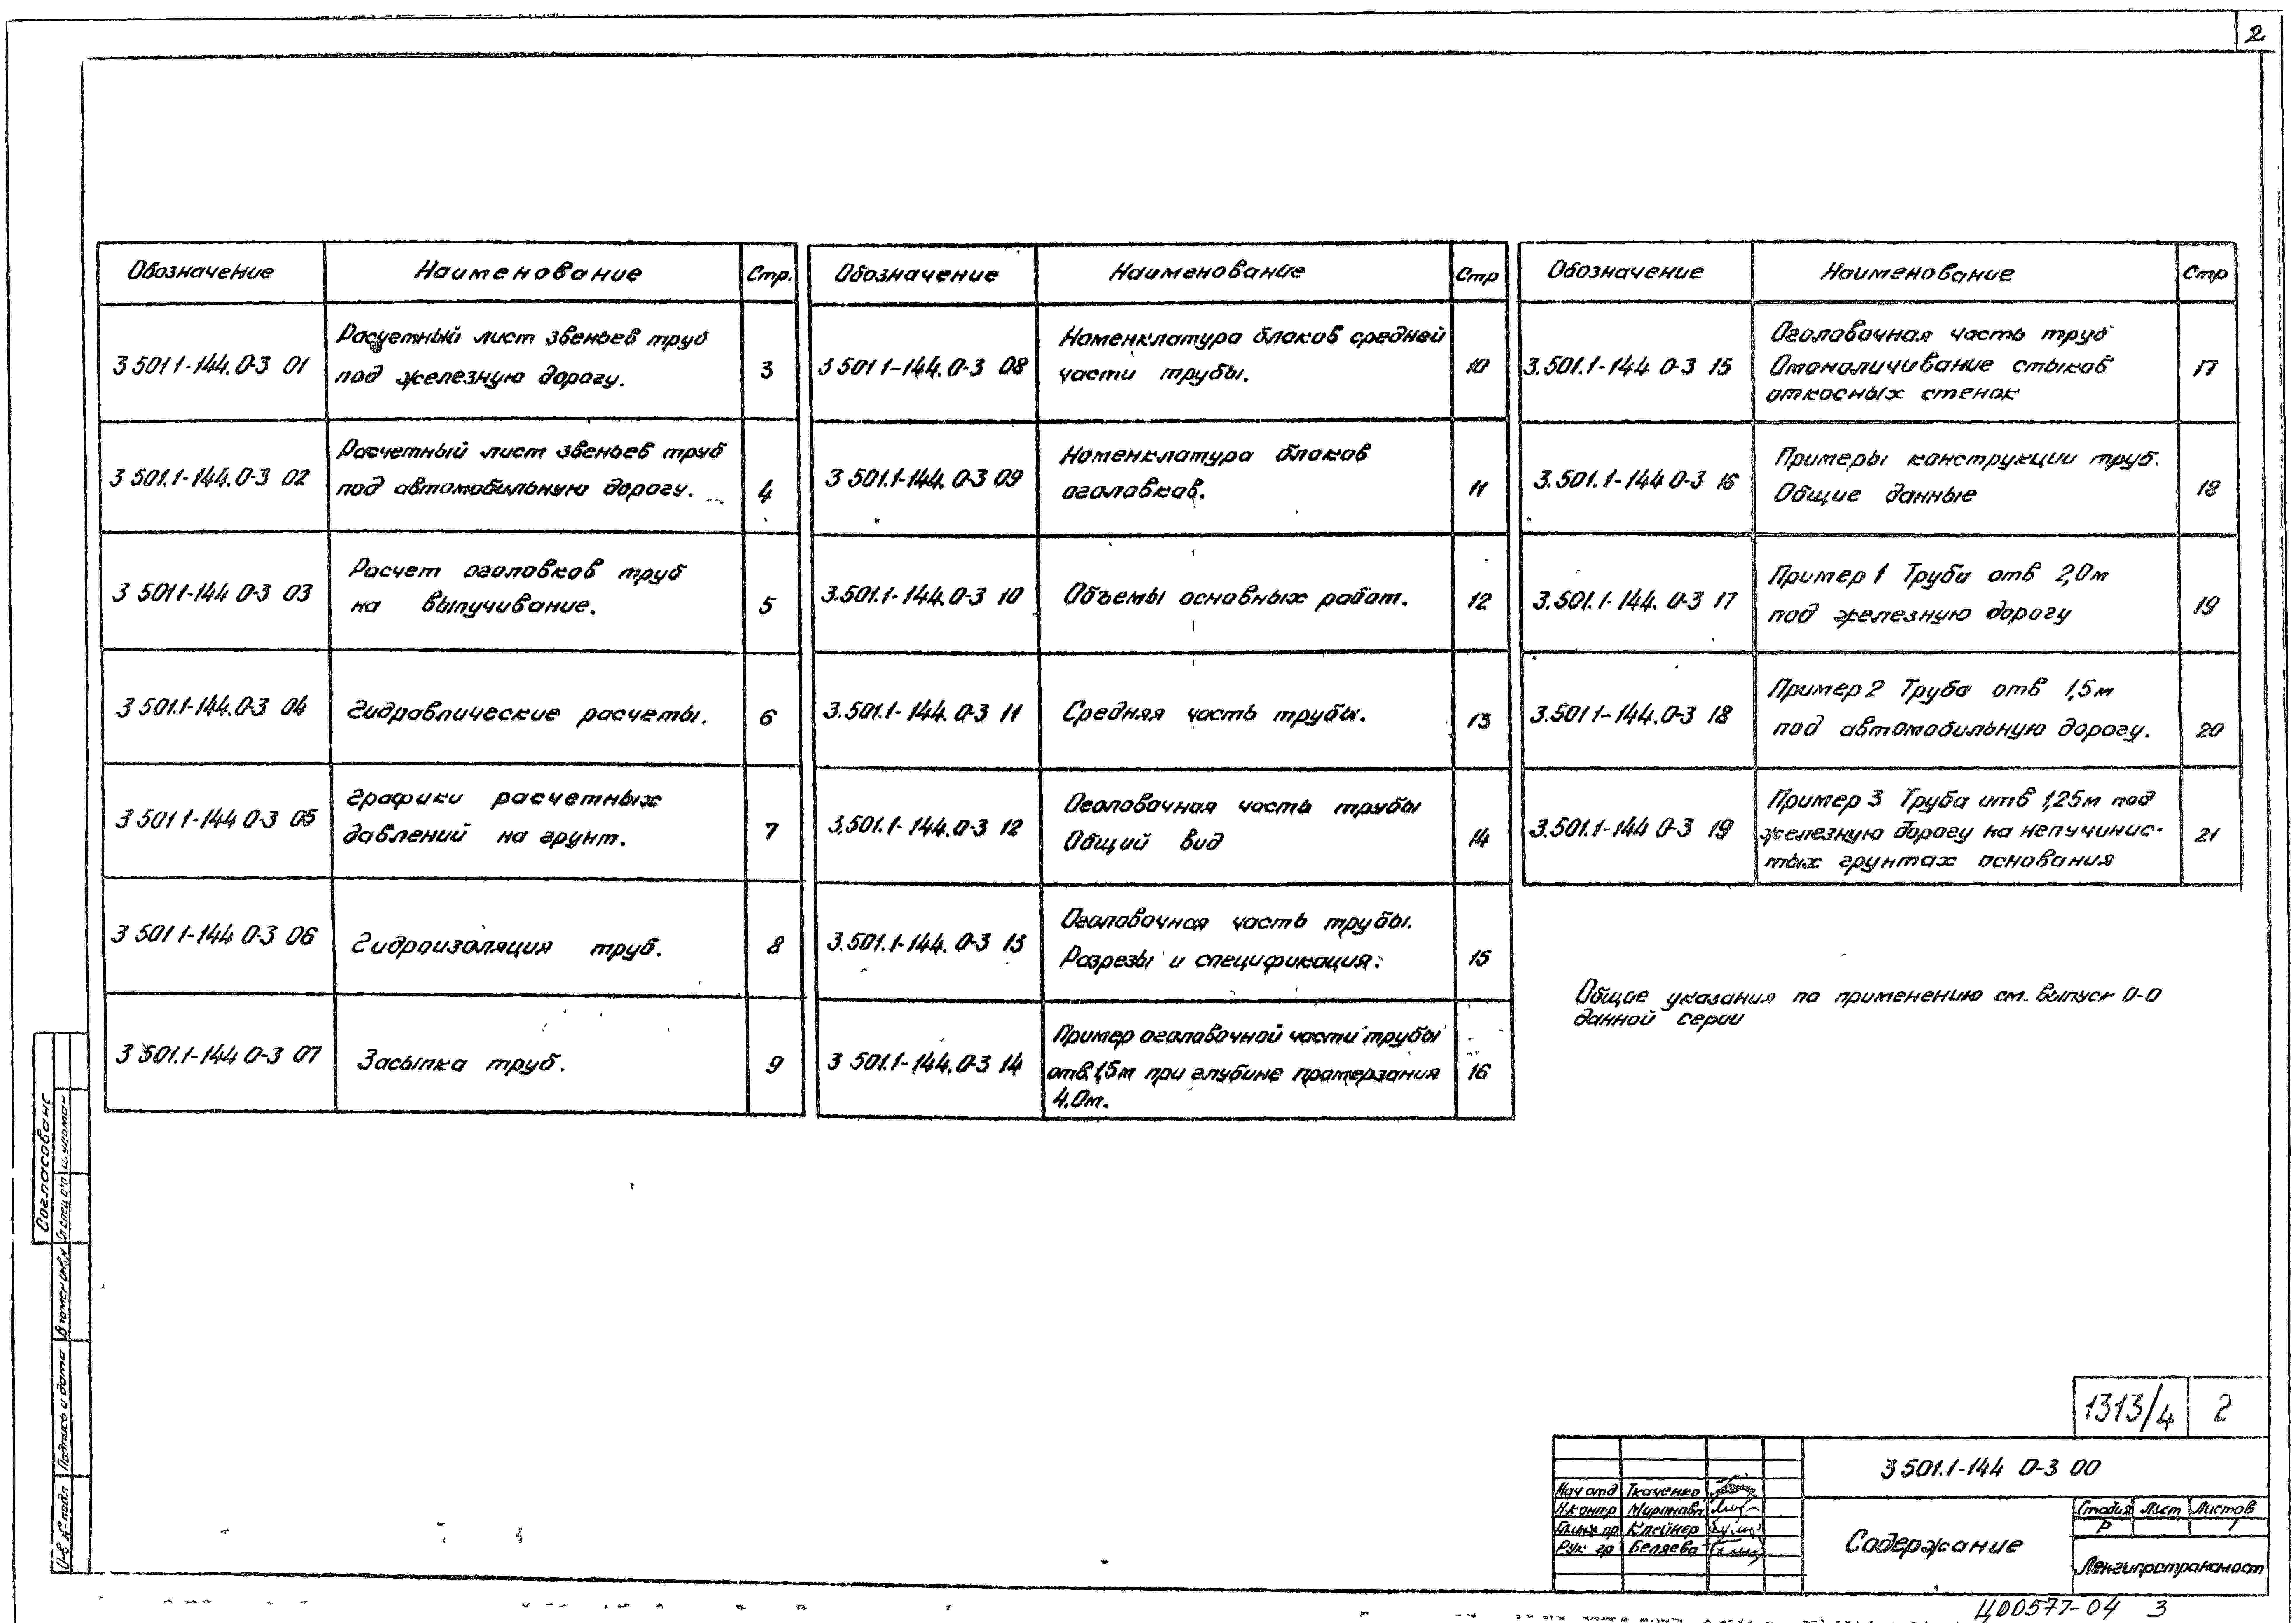 2
Обозначение Наименование Стр.
3 501 1-144. 0-3 01 Расчетный лист звеньев труб
под железную дорогу. 3
3 501.1-144. 0-3 02 Расчетный лист звеньев труб
под автомобильную дорогу. 4
3 501 1-144 0-3 03 Расчет оголовков труб
на выпучивание. 5
3 501.1-144. 0-3 04 Гидравлические расчеты. 6
3 501 1-144 0-3 05 Графики расчетных
давлений на грунт. 7
3 501 1-144 0-3 06 Гидроизоляция труб. 8
3 501.1-144 0-3 07 Засыпка труб. 9
Обозначение Наименование Стр
3 501 1-144. 0-3 08 Номенклатура блоков средней
части трубы. 10
3 501.1-144. 0-3 09 Номенклатура блоков
оголовков. 11
3.501.1-144. 0-3 10 Объемы основных работ. 12
3.501.1-144. 0-3 11 Средняя часть трубы. 13
3.501.1-144. 0-3 12 Оголовочная часть трубы
Общий вид 14
3.501.1-144. 0-3 13 Оголовочная часть трубы.
Разрезы и спецификация. 15
3 501.1-144. 0-3 14 Пример оголовочной части трубы
отв. 1,5м при глубине промерзания
4.0м. 16
Обозначение Наименование Стр
3.501.1-144 0-3 15 Оголовочная часть труб
Отоналичивание стыков
откосных стенок 17
3.501.1-144 0-3 16 Примеры конструкции труб.
Общие данные 18
3.501.1-144. 0-3 17 Пример 1 Труба отв 2,0м
под железную дорогу 19
3.501 1-144. 0-3 18 Пример 2 Труба отв 1,5м
под автомобильную дорогу. 20
3.501.1-144 0-3 19 Пример 3 Труба отв 1,25м под
железную дорогу на непучинис-
тых грунтах основания 21
Общие указания по применению см. выпуск 0-0
данной серии
Согласовано
Взамен инв.№
Подпись и дата
Инв.№ подл
1313/4 2
3 501.1-144 0-3 00
Нач отд Ткаченко
Н.контр Миронова
Гл.инж пр Клейнер
Рук гр Беляева
Содержание
Стадия Лист Листов
Р 1
Ленгипротрансмост
Ц00577-04 3